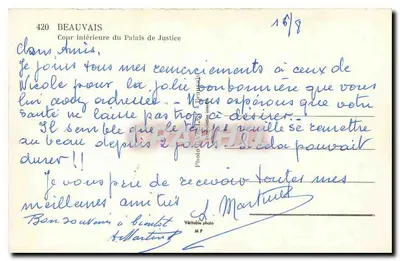 420 BEAUVAIS
Cour intérieure du Palais de Justice
16/8
Chers Amis.
Je joins tous mes remerciements à ceux de
Nicole pour la jolie bonbonnière que vous
lui avez adressée. - Nous espérons que votre
santé ne laisse pas trop à désirer. -
Il semble que le temps veuille se remettre
au beau depuis 2 jours - si cela pouvait
durer !!
Je vous prie de recevoir toutes mes
meilleures amitiés
Bon souvenir à bientôt
Martinet
Véritable photo
M F